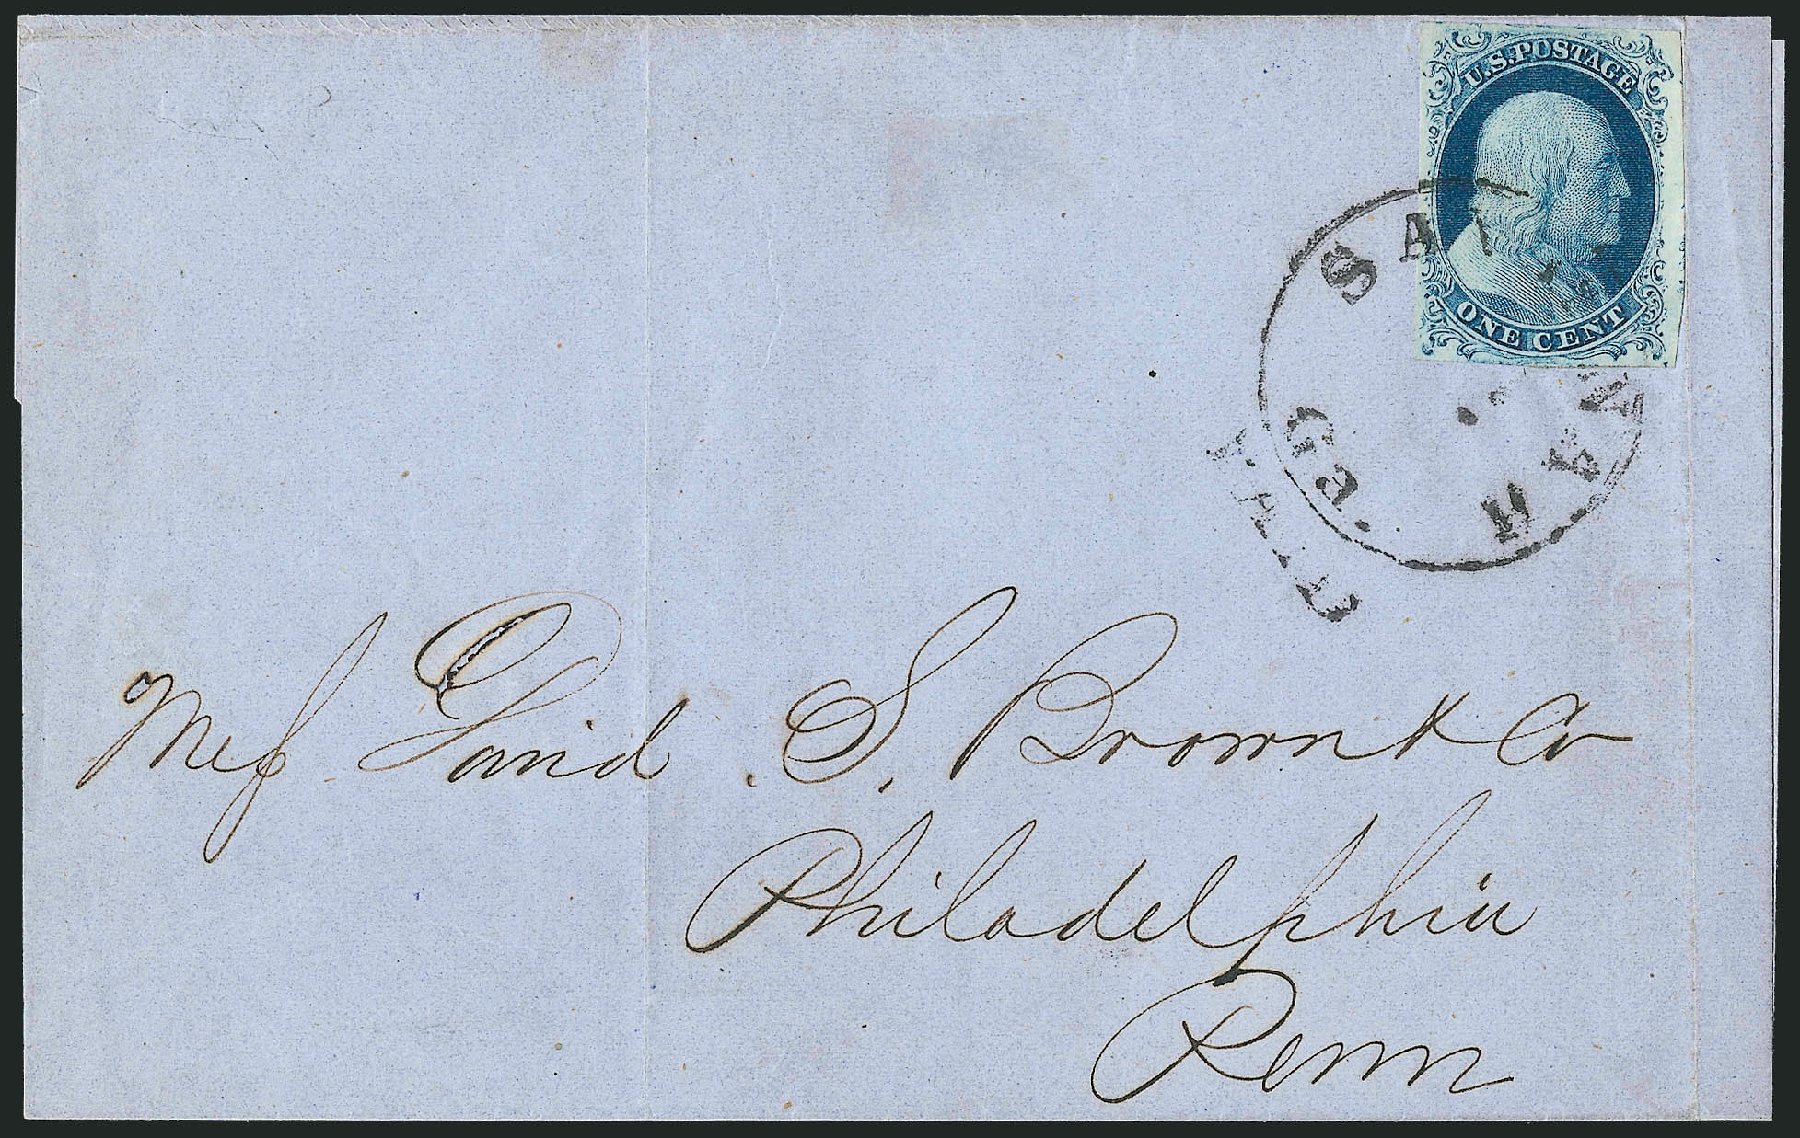 U.S. POSTAGE
ONE CENT
SAV NAH
Ge.
PAID
Mess David S. Brown & Co
Philadelphia
Penn